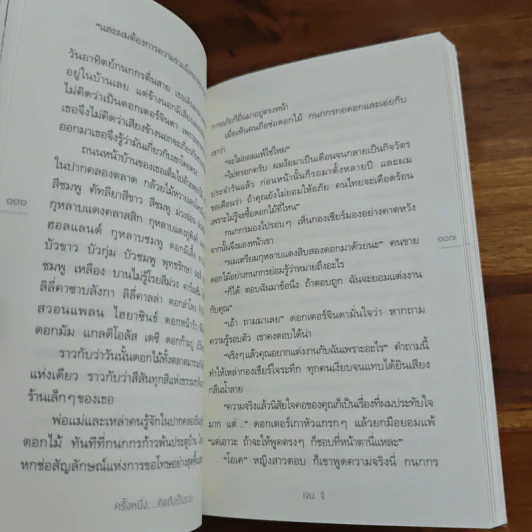 "และผมต้องการความร่วมมือ
วันอาทิตย์กนกกรตื่นสาย เธอ
อยู่ในบ้านเลย แต่ข้างนอกมีเสียง
ไม่คิดว่าเป็นดอกเตอร์จินดา
เธอจึงไม่คิดว่าเสียงข้างนอกจะเกี่ยว
ออกมาเธอจึงรู้ว่ามันเกี่ยวกับเธอ
ถนนหน้าบ้านของเธอเต็มไปด้วย
ในปากคลองตลาด กล้วยไม้หวาย
สีชมพู คัทลียาสีขาว สีชมพู ม่วงอ่อน
กุหลาบแดงคลาสสิก กุหลาบแดง
ฮอลแลนด์ กุหลาบชมพู ดอกมิ
บัวขาว บัวกุ่ม บัวชมพู พุทธรักษา
ชมพู เหลือง บานไม่รู้โรยสีม่วง คาร์เนชั่น
ลิลี่คาซาบลังกา ลิลี่คาลล่า ดอกลำโพง
สวอนแพลน ไฮยาซินธ์ ดอกหน้าวัว
ดอกมัม แกลดิโอลัส เดซี่ ดอกก้ามปู
ราวกับว่าวันนั้นดอกไม้ทั้งตลาดมา
แห่งเดียว ราวกับว่าสีสันทุกสีแห่ง
ร้านเล็กๆของเธอ
พ่อแม่และเหล่าคนรู้จักในปากคลอง
ดอกไม้ ทันทีที่กนกกรก้าวพ้นประตูบ้าน
หกช่อสัญลักษณ์แห่งการขอโทษอย่างสุดซึ้ง
๑๐๖
ครั้งหนึ่ง...คิดถึงเป็นระยะ
ยืนมาอยู่ตรงหน้า
เมื่อเห็นคนถือช่อดอกไม้ กนกกรกอดอกและเอ่ยกับ
เขาว่า
"จะไม่ยอมแพ้ใช่ไหม"
"ไม่หรอกครับ ผมง้อมาเป็นเดือนจนกลายเป็นกิจวัตร
ประจำวันแล้ว ก่อนหน้านั้นก็รอมาตั้งหลายปี และผม
ขอเตือนว่า ถ้าคุณยังไม่ยอมให้อภัย คนไทยจะเดือดร้อน
เพราะไม่รู้จะซื้อดอกไม้ที่ไหน"
กนกกรมองไปรอบๆ เห็นกองเชียร์มองอย่างคาดหวัง
จากนั้นจึงมองหน้าเขา
"ผมเตรียมกุหลาบแดงสิบสองดอกมาด้วยนะ" คนขาย
ดอกไม้อย่างกนกกรย่อมรู้ว่าหมายถึงอะไร
"ก็ได้ ตอบฉันมาข้อนึง ถ้าตอบถูก ฉันจะยอมแต่งงาน
กับคุณ"
"เอ้า ถามมาเลย" ดอกเตอร์จินดามั่นใจว่า หากถาม
ความรู้รอบตัว เขาคงตอบได้น่า
"จริงๆแล้วคุณอยากแต่งงานกับฉันเพราะอะไร" คำถามนี้
ทำให้เหล่ากองเชียร์ใจระทึก ทุกคนเงียบจนแทบได้ยินเสียง
กลืนน้ำลาย
"ความจริงแล้วนิสัยใจคอของคุณก็เป็นเรื่องที่ผมประทับใจ
มาก แต่..." ดอกเตอร์เกาหัวแกรกๆ แล้วยกมือยอมแพ้
"แต่เอาวะ ถ้าจะให้พูดตรงๆ ก็ชอบที่หน้าตานี่แหละ"
"โอเค" หญิงสาวตอบ ก็เขาพูดความจริงนี่ กนกกร
๑๐๗